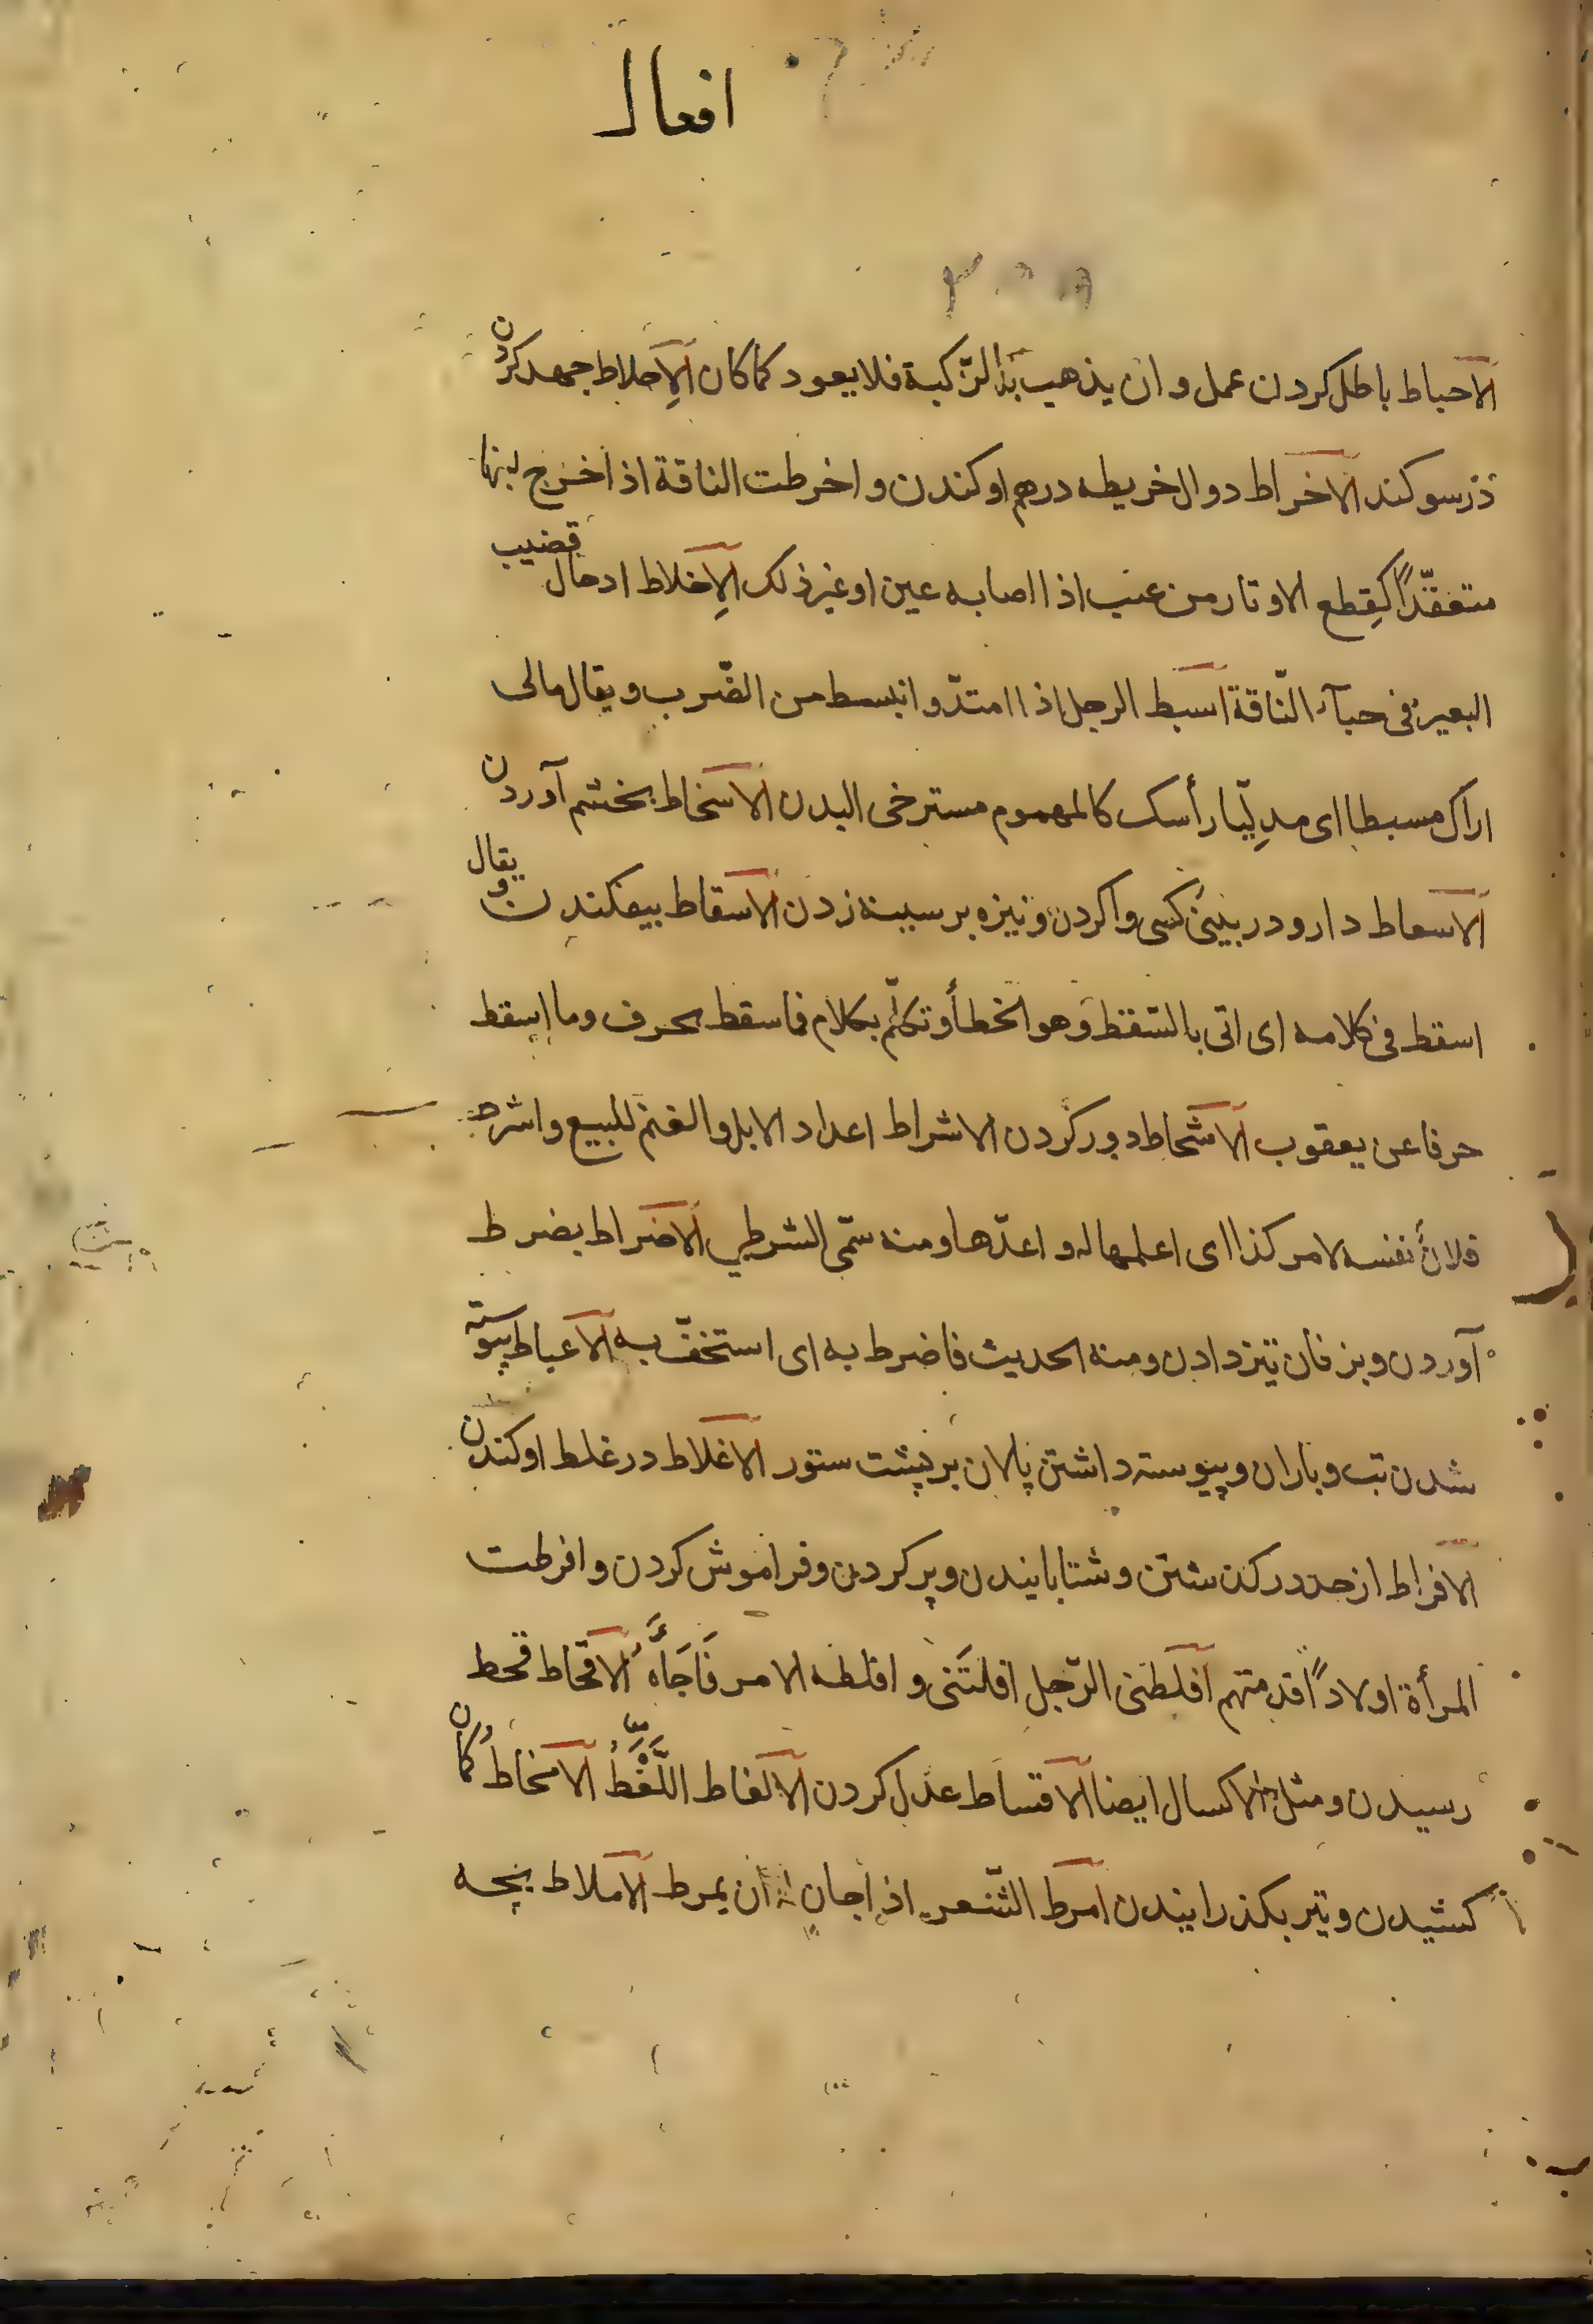 افعال
الاحباط باطل کردن عمل و ان یذهب بماء الرّکیة فلا یعود کما کان الاِحلاط جهد کردن
در سوکند الاخراط دوال خریطه درهم اوکندن و اخرطت الناقة اذا اخرج لبنها
متعقّداً کقِطع الاوتار من عیب اذا اصابه عین او غیر ذلک الاِخلاط ادخال قضیب
البعیر فی حیآء النّاقة اسبط الرجل اذا امتدّ و انبسط من الضّرب و یقال مالی
اراک مسبطا ای مدلِّیا رأسک کالمهموم مسترخی البدن الاسخاط بخشم آوردن
الاسعاط دارو در بینیٔ کسی وا کردن و نیزه بر سینه زدن الاسقاط بیفکندن و یقال
اسقط فی کلامه ای اتی بالسّقط وهو الخطأ و تکلّم بکلام فما سقط بحرف وما اسقط
حرفا عن یعقوب الاشحاط دور کردن الاشراط اعداد الابل و الغنم للبیع و اشرط
فلانٌ نفسه لامر کذا ای اعلمها له و اعدّها و منه سمّی الشرطی الاضراط بضرط
آوردن و بزفان تیز دادن و منه الحدیث فاضرط به ای استخفّ به الاغباط پیوسته
شدن تب و باران و پیوسته داشتن پالان بر پشت ستور الاغلاط در غلط اوکندن
الافراط از حد درکذشتن و شتابانیدن و پر کردن و فراموش کردن و افرطت
المرأة اولاداً قدمتهم افلطنی الرّجل افلتَنی و افلطه الامر فَاجَأَه الاقحاط قحط
رسیدن و مثل الاکسال ایضا الاقساط عدل کردن الالغاط اللَّغَط الامخاط کمان
کشیدن و تیر بکذرانیدن امرط الشّعر اذا حان ان یمرط الاملاط بچه